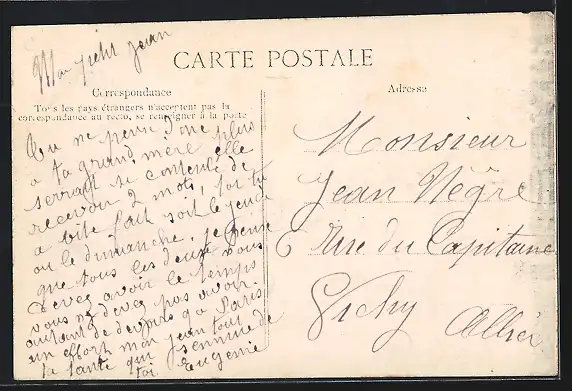 Mon petit Jean
CARTE POSTALE
Correspondance
Tous les pays étrangers n'acceptent pas la
correspondance au recto, se renseigner à la poste
Adresse
Tu ne pense donc plus
a ta grand mère elle
serrait si contente de
recevoir 2 mots,
a vite fait soit le jeudi
ou le dimanche, je pense
que tous les deux vous
devez avoir le temps
vous ne devez pas avoir
autant de devoirs qu'a Paris
un effort mon Jean
ta tante qui
toi. Eugenie
Monsieur
Jean Nègre
6 Rue du Capitaine
Vichy
Allier